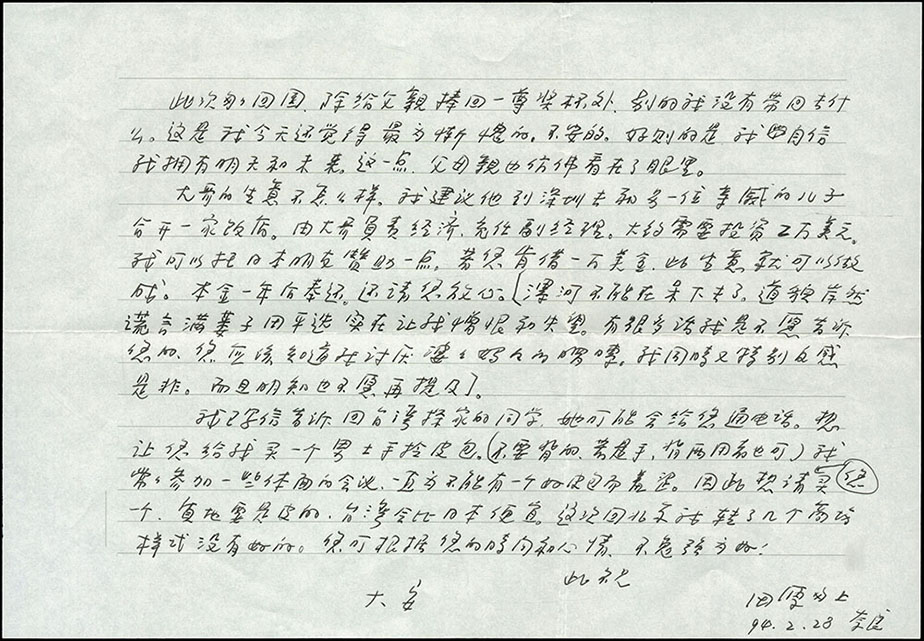 此次匆匆回国，除给父親捧回一尊奖杯外，别的我没有带回去什
么。这是我今天还觉得最为慚愧的，不安的。好则的是我自信
我拥有明天和未来。这一点，父母親也仿佛看在了眼里。
大哥的生意不怎么样。我建议他到深圳去和另一位的儿子
合开一家饭店。由大哥負責经済，充任副经理。大约需要投资2万美元。
我可以把日本朋友赞助一点。若您肯借一万美金，此生意就可以做
成。本金一年后奉还。还請您放心。[漯河不能在呆下去了。道貌岸然
謊言满葉子田平选实在让我憎恨和失望。有很多话我是不愿告诉
您的，您应该知道我讨厌婆婆妈妈的。我同時又特别反感
是非。而且明知也不愿再提及]。
我已写信告诉回台湾探家的同学，她可能会给您通电话。想
让您给我买一个男士手拎皮包。(不要背的，若是手，背两用者也可)我
常常参加一些体面的会议，一直为不能有一个好皮包而羞涩。因此想请您买
一个，質地要是皮的，台湾会比日本便宜。这次回北京我转了几个商场
样式没有好的。您可根据您的時间和心情，不勉強为好！
此祝
大安
田原 上
94.2.28 奈良